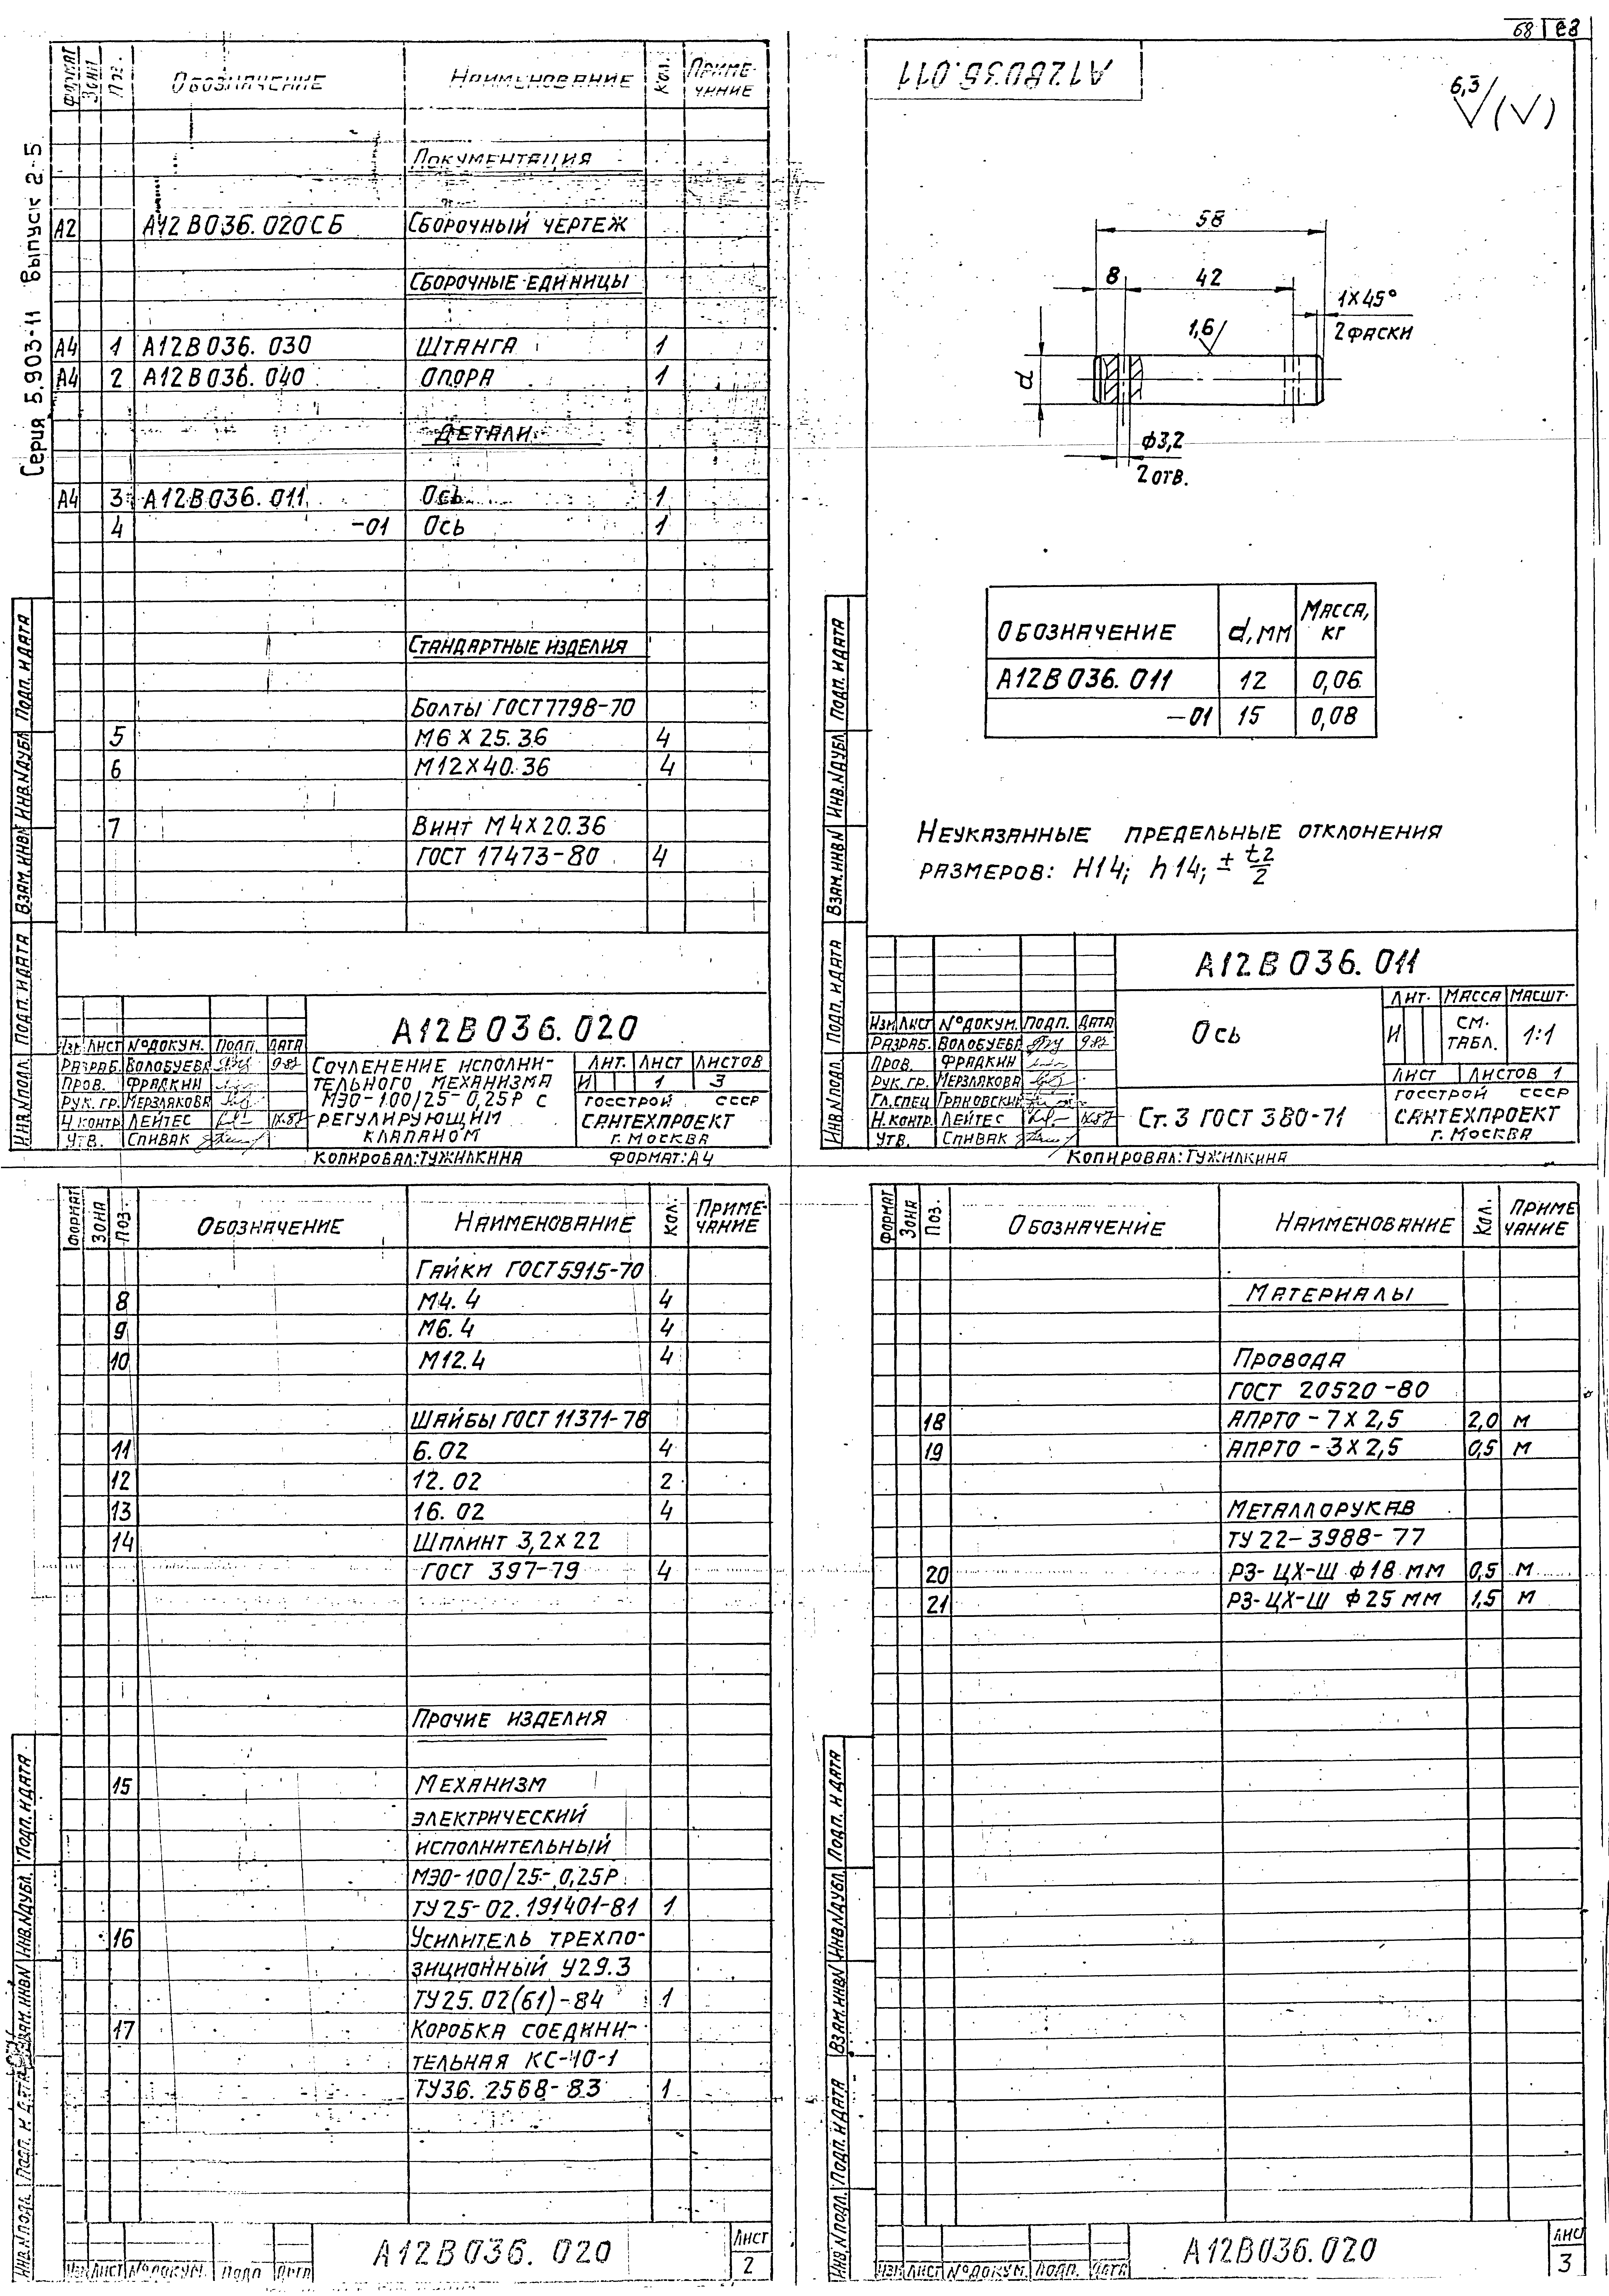 68 | 68
Серия 5.903-11 Выпуск 2-5
Формат Зона Поз. Обозначение Наименование Кол. Приме-
чание
Документация
А2 А12В036.020СБ Сборочный чертеж
Сборочные единицы
А4 1 А12В036.030 Штанга 1
А4 2 А12В036.040 Опора 1
Детали
А4 3 А12В036.011 Ось 1
4 -01 Ось 1
Стандартные изделия
Болты ГОСТ 7798-70
5 М6×25.36 4
6 М12×40.36 4
7 Винт М4×20.36
ГОСТ 17473-80 4
Инв.№подл. Подп. и дата Взам.инв№ Инв.№дубл Подп. и дата
А12В036.020
Изм Лист №докум. Подп. Дата
Разраб. Волобуева 9.87
Пров. Фрадкин
Рук. гр. Мерзлякова
Н.контр. Лейтес IX.87
Утв. Спивак
Сочленение исполни-
тельного механизма
МЭО-100/25-0,25Р с
регулирующим
клапаном
Лит. Лист Листов
И 1 3
Госстрой СССР
Сантехпроект
г. Москва
Копировал: Тужилкина Формат: А4
А12В036.011
6,3 (√)
58
8 42
1×45°
2 фаски
1,6
d
ф3,2
2 отв.
Обозначение d, мм Масса,
кг
А12В036.011 12 0,06
-01 15 0,08
Неуказанные предельные отклонения
размеров: H14; h14; ± t2/2
Инв.№подл. Подп. и дата Взам.инв№ Инв.№дубл Подп. и дата
А12В036.011
Изм Лист №докум. Подп. Дата
Разраб. Волобуева 9.87
Пров. Фрадкин
Рук. гр. Мерзлякова
Гл.спец Грановский
Н.контр. Лейтес IX.87
Утв. Спивак
Ось
Ст. 3 ГОСТ 380-71
Лит. Масса Масшт.
И см.
табл. 1:1
Лист Листов 1
Госстрой СССР
Сантехпроект
г. Москва
Копировал: Тужилкина
Формат Зона Поз. Обозначение Наименование Кол. Приме-
чание
Гайки ГОСТ 5915-70
8 М4.4 4
9 М6.4 4
10 М12.4 4
Шайбы ГОСТ 11371-78
11 6.02 4
12 12.02 2
13 16.02 4
14 Шплинт 3,2×22
ГОСТ 397-79 4
Прочие изделия
15 Механизм
электрический
исполнительный
МЭО-100/25-0,25Р
ТУ25-02.191401-81 1
16 Усилитель трехпо-
зиционный У29.3
ТУ25.02(61)-84 1
17 Коробка соедини-
тельная КС-10-1
ТУ36.2568-83 1
Инв.№подл. Подп. и дата Взам.инв№ Инв.№дубл. Подп. и дата
Изм Лист №докум. Подп Дата
А12В036.020
Лист
2
Формат Зона Поз. Обозначение Наименование Кол. Приме
чание
Материалы
Провода
ГОСТ 20520-80
18 АПРТО-7×2,5 2,0 м
19 АПРТО-3×2,5 0,5 м
Металлорукав
ТУ 22-3988-77
20 РЗ-ЦХ-Ш ф18 мм 0,5 м
21 РЗ-ЦХ-Ш ф25 мм 1,5 м
Инв.№подл. Подп. и дата Взам.инв№ Инв.№дубл. Подп. и дата
Изм Лист №докум. Подп. Дата
А12В036.020
Лис
3